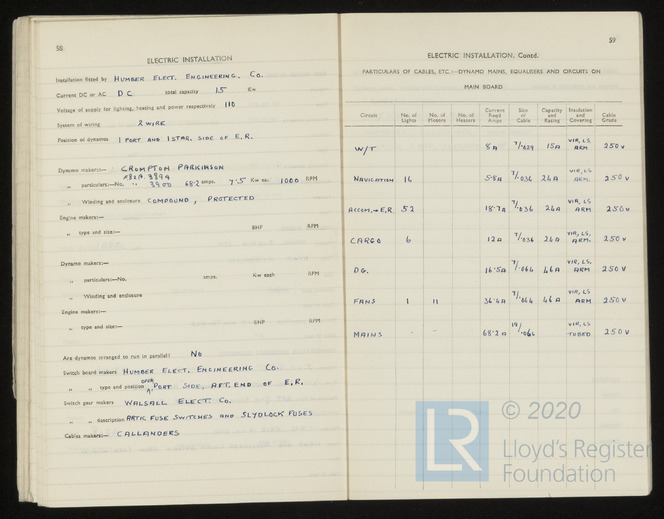 58
ELECTRIC INSTALLATION
Installation fitted by HUMBER ELECT. ENGINEERING. Co.
Current DC or AC DC total capacity 15 Kw
Voltage of supply for lighting, heating and power respectively 110
System of wiring 2 WIRE
Position of dynamos 1 PORT AND 1 STAR. SIDE OF E.R.
Dynamo makers:— CROMPTON PARKINSON
3894
„ particulars:—No. „ 3900 68.2 amps. 7.5 Kw ea: 1000 RPM
„ Winding and enclosure COMPOUND, PROTECTED
Engine makers:—
„ type and size:— BHP RPM
Dynamo makers:—
„ particulars:—No. amps. Kw each RPM
„ Winding and enclosure
Engine makers:—
„ type and size:— BHP RPM
Are dynamos arranged to run in parallel? No
Switch board makers HUMBER ELECT. ENGINEERING Co.
„ „ type and position OPEN PORT SIDE, AFT. END OF E.R.
Switch gear makers WALSALL ELECT. Co.
„ „ description ARTIC FUSE SWITCHES AND SLYDLOCK FUSES
Cables makers:— CALLANDERS
59
ELECTRIC INSTALLATION, Contd.
PARTICULARS OF CABLES, ETC.:—DYNAMO MAINS, EQUALISERS AND CIRCUITS ON
MAIN BOARD
Circuit No. of Lights No. of Motors No. of Heaters Current Reqd Amps Size or Cable Capacity and Rating Insulation and Covering Cable Grade
W/T 8A 7/.029 15A VIR, LS ARM 250V
NAVIGATION 16 5.8A 7/.036 24A VIR, LS ARM. 250V
ACCOM. E.R. 52 18.7A 7/.036 24A VIR, LS ARM 250V
CARGO 6 12A 7/.036 24A VIR, LS ARM. 250V
DG. 16.5A 7/.064 46A VIR, LS ARM 250V
FANS 1 11 36.4A 7/.064 46A VIR, LS ARM 250V
MAINS - - 68.2A 19/.064 VIR, LS TUBED 250V
LR
© 2020
Lloyd's Register
Foundation